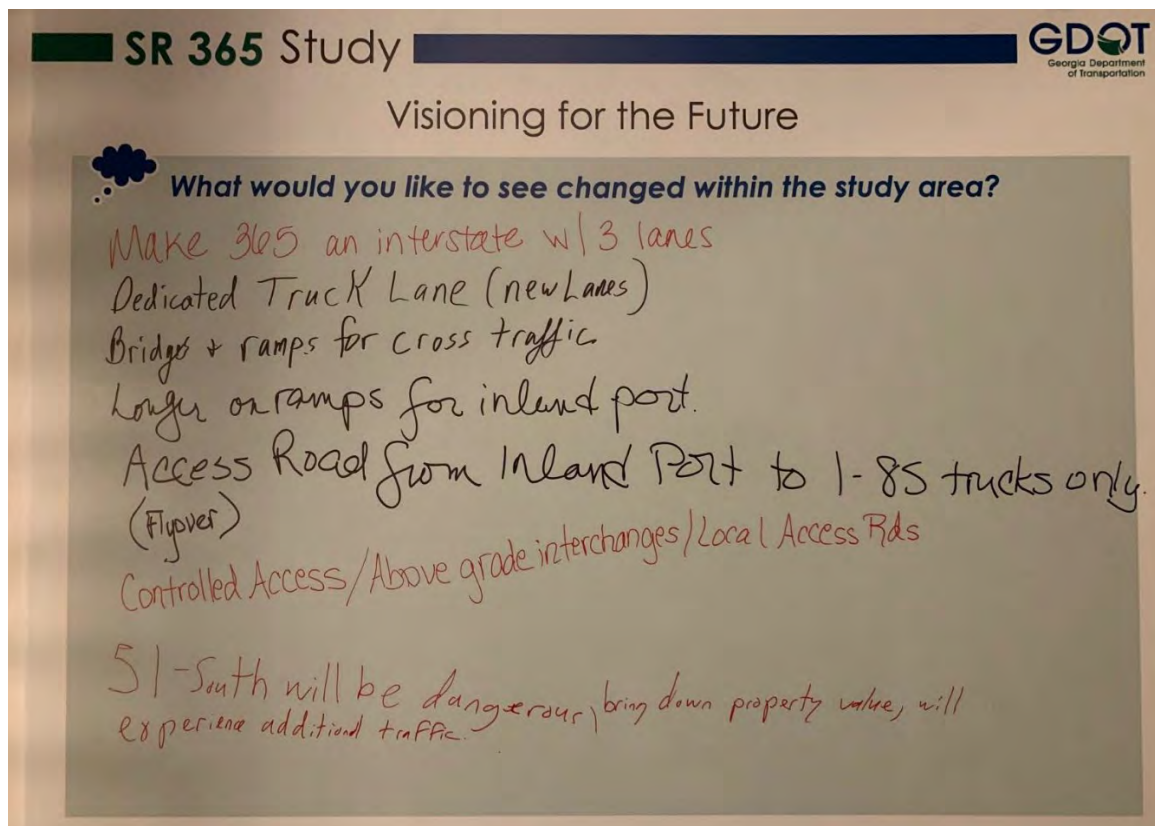 SR 365 Study
GDOT
Georgia Department
of Transportation
Visioning for the Future
What would you like to see changed within the study area?
Make 365 an interstate w/ 3 lanes
Dedicated Truck Lane (new Lanes)
Bridges + ramps for cross traffic
Longer on ramps for inland port.
Access Road from Inland Port to I-85 trucks only.
(Flyover)
Controlled Access/Above grade interchanges/Local Access Rds
51-South will be dangerous, bring down property value, will
experience additional traffic.